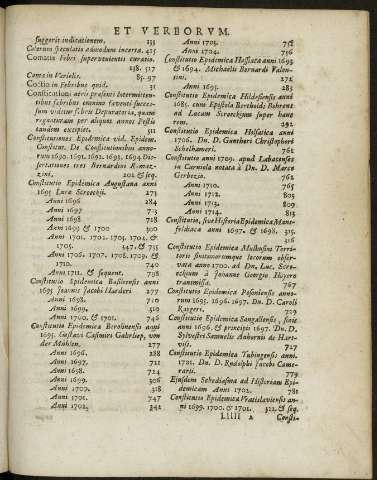 ET VERBORVM.
suggerit indicationem. 233
Caterum speculatis admodum incerta. 425
Comatis Febri supervenientis curatio. 238. 517
Coma in Variolis. 85. 97
Coctio in febribus quid. 31
Constitutioni aeris præsenti Intermittentibus
febribus omnino faventi successum
videtur febris Depuratoria, quam
regnaturam per aliquos annos Festi
tandem excipiet. 511
Constitutiones Epidemica vid. Epidem.
Constitut. De Constitutionibus annorum
1690. 1691. 1692. 1693. 1694 Dissertationes
tres Bernardini Ramazzini.
202 & seq.
Constitutio Epidemica Augustana anni
1695 Luca Scroeckii. 273
Anni 1696 284
Anni 1697 713
Anni 1698 718
Anni 1699 & 1700 300
Anni 1701. 1702. 1703. 1704. &
1705. 347. & 735
Anni 1706. 1707. 1708. 1709. &
1710. 740
Anni 1711. & sequent. 798
Constitutio Epidemica Basileensis anni
1695 Joannis Jacobi Harderi 277
Anni 1698. 710
Anni 1699. 510
Anni 1700. & 1701. 746
Constitutio Epidemica Berolinensis anni
1695. Gustavi Casimiri Gahrliep, von
der Mühlen. 277
Anni 1696. 288
Anni 1697. 721
Anni 1698. 724
Anni 1699. 306
Anni 1700. 318
Anni 1701. 787
Anni 1702. 342
Anni 1703. 752
Anni 1704. 756
Constitutio Epidemica Hassiaca anni 1693
& 1694. Michaelis Bernardi Valentini.
272
Anni 1695. 283
Constitutio Epidemica Hildesiensis anni
1685. cum Epistola Bertholdi Behrens
ad Lucam Scroeckium super hanc
rem. 292
Constitutio Epidemica Holsatica anni
1706. Dn. D. Guntheri Christophori
Schelhameri. 762
Constitutio anni 1709. apud Labacenses
in Carniola notata à Dn. D. Marco
Gerbezio. 762
Anni 1710. 765
Anni 1712. 805
Anni 1713. 809
Anni 1714. 813
Constitutio, seu Historia Epidemica Mansfeldiaca
anni 1697. & 1698. 315.
316
Constitutio Epidemica Mulhusini Territorii
finitimorumque locorum observata
anno 1700. ad Dn. Luc. Scroeckium
à Johanne Georgio Hoyero
transmissa. 767
Constitutio Epidemica Posoniensis annorum
1695. 1696. 1697. Dn. D. Caroli
Raygeri. 729
Constitutio Epidemica Sangallensis, finientis
anni 1696. & principii 1697. Dn. D.
Sylvestri Samuelis Anhornii de Hartwiss.
727
Constitutio Epidemica Tubingensis anni
1701. Dn. D. Rudolphi Jacobi Camerarii.
779
Ejusdem Schediasma ad Historiam Epidemicam
Anni 1702. 781
Constitutio Epidemica Vratislaviensis anni
1699. 1700. & 1701. 322. & seq.
Lllll 2
Consti-